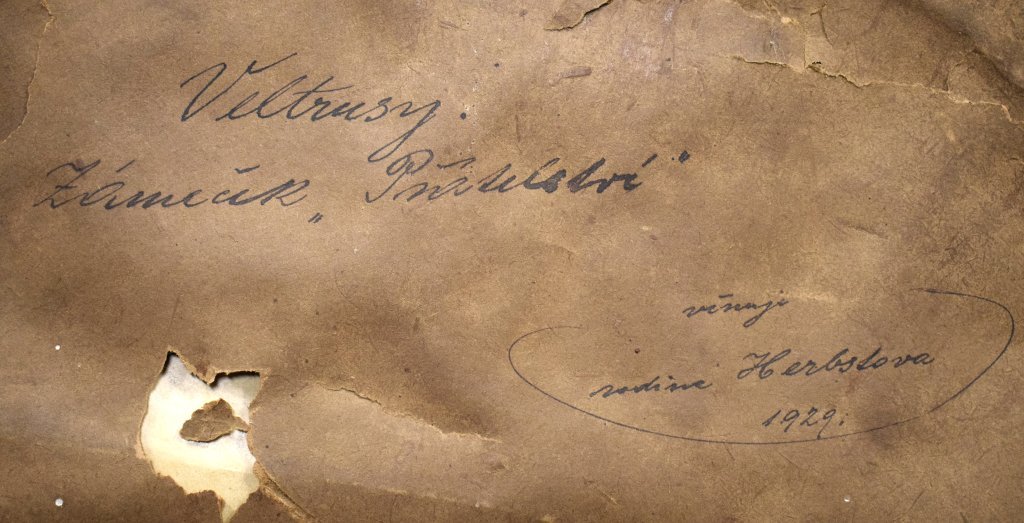 Veltrusy.
Zámeček „Přátelství"
věnuje
rodina Herbstova
1929.